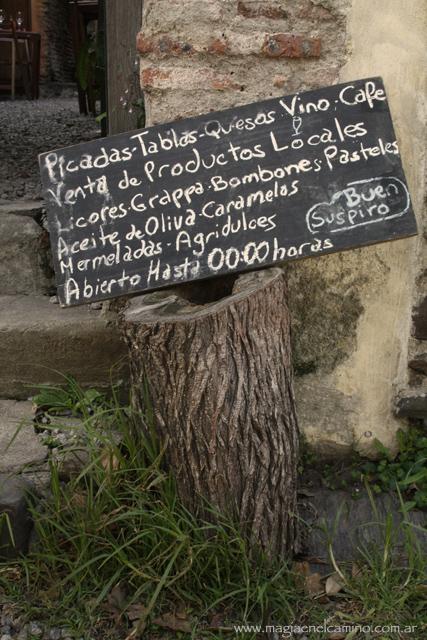 Picadas-Tablas-Quesos Vino-Cafe
Venta de Productos Locales
Licores-Grappa-Bombones-Pasteles
Aceite de Oliva-Caramelas
Mermeladas-Agridulces
Abierto Hasta 00:00 horas
Buen
Suspiro
www.magiaenelcamino.com.ar